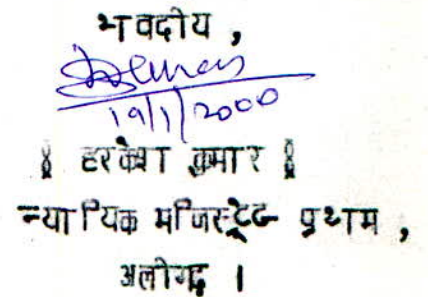 भवदीय ,
19/1/2000
॰ हरकेश कुमार ॰
न्यायिक मजिस्ट्रेट प्रथम ,
अलीगढ़ ।